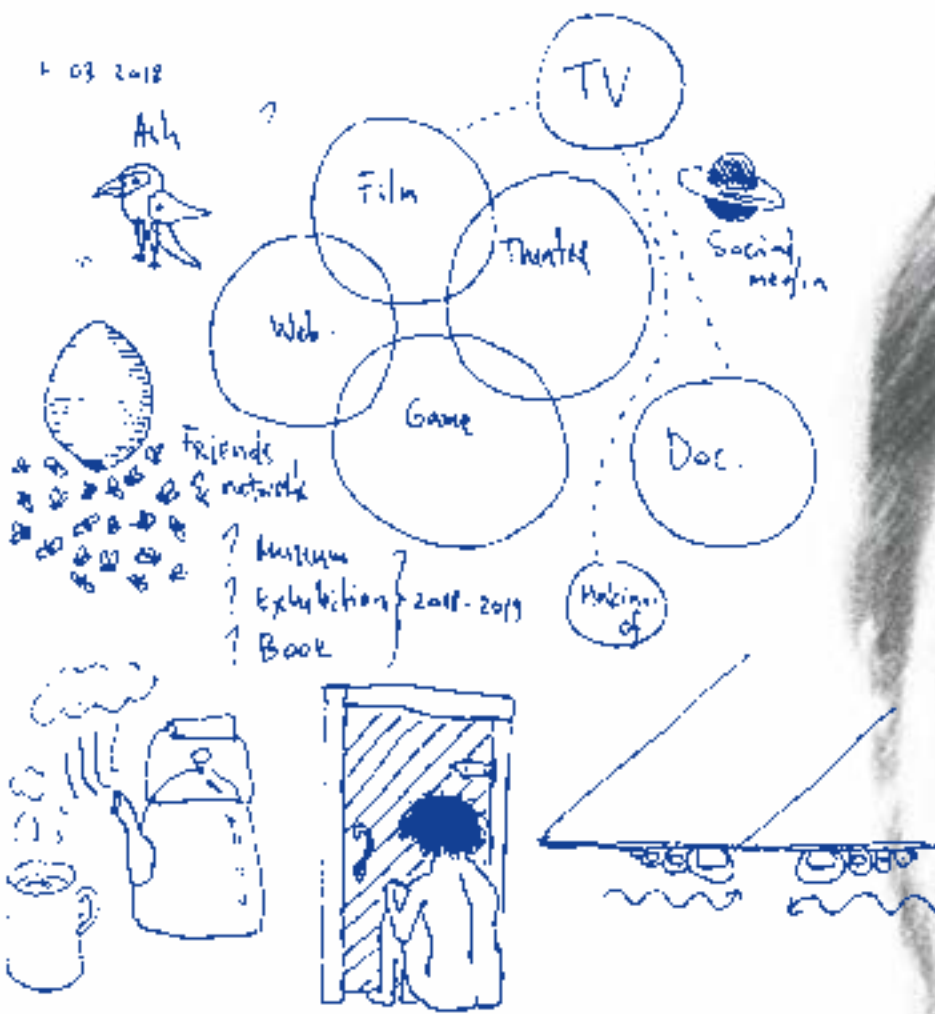 03 2018
TV
Film
Theatre
Social
media
Web.
Game
Doc.
Friends
& network
Museum
Exhibition
Book
2018-2019
Making
of